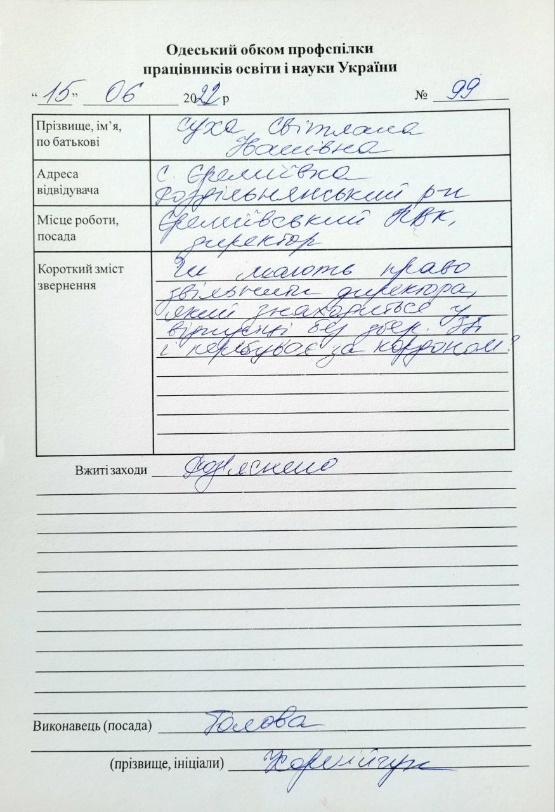 Одеський обком профспілки
працівників освіти і науки України
“ 15 ” 06 2022 р № 99
Прізвище, ім’я,
по батькові
Суха Світлана
Адреса
відвідувача
с. Єреміївка
Роздільнянський р-н
Місце роботи,
посада
Єреміївський НВК,
директор
Короткий зміст
звернення
Чи мають право
звільнити директора,
який знаходиться у
відпустці без збер. з/п
і перебуває за кордоном?
Вжиті заходи Роз'яснено
Виконавець (посада) Голова
(прізвище, ініціали) Корнійчук